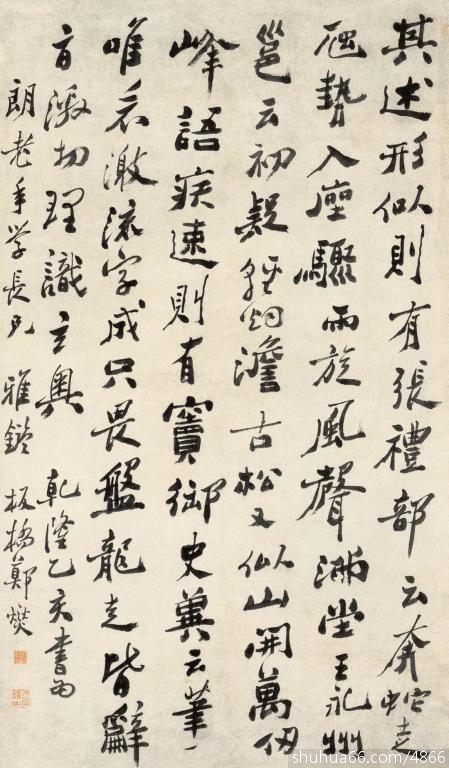 其述形似則有張禮部云奔蛇走
虺勢入座驟雨旋風聲滿堂王永州
邕云初疑輕烟澹古松又似山開萬仞
峰語疾速則有竇御史冀云筆下
唯看激流字成只畏盤龍走皆辭
旨激切理識玄奧 乾隆乙亥書為
朗老年學長兄雅鑒 板橋鄭燮
shuhua66.com/4866